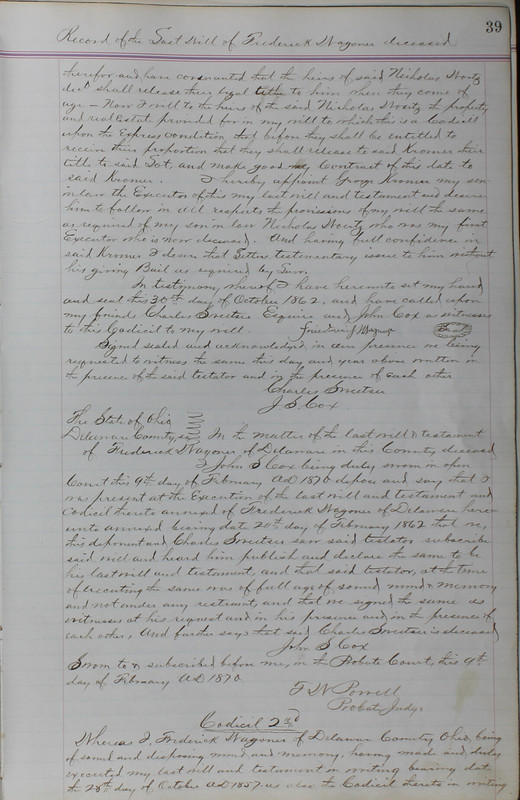 39
Record of the Last Will of Frederick Wagoner deceased
therefor and have covenanted that the heirs of said Nicholas
decd shall release their legal title to him when they come of
age – Now I will to the heirs of the said Nicholas the property
and real Estate provided for in my will to which this is a Codicil
upon the Express condition that before they shall be entitled to
receive their proportion that they shall release to said Kromer their
title to said Lot and make good my Contract of this date to
said Kromer. I hereby appoint George Kromer my son
in law the Executor of this my last will and testament and desire
him to follow in all respects the provisions of my will the same
as required of my son in law Nicholas who was my first
Executor who is now deceased. And having full confidence in
said Kromer I desire that Letters testamentary issue to him without
his giving Bail as required by Law.
In testimony whereof I have hereunto set my hand
and seal this 30th day of October 1862, and have called upon
my friends Charles Sweetser Esquire and John Cox as witnesses
to this Codicil to my will. Friedrich Wagner Seal
Signed sealed and acknowledged in our presence we being
requested to witness the same this day and year above written in
the presence of the said testator and in the presence of each other
Charles Sweetser
J. S. Cox
The State of Ohio
Delaware County, ss In the matter of the last will & testament
of Frederick Wagoner of Delaware in this County deceased
I John S Cox being duly sworn in open
Court this 9th day of February AD 1870 depose and say that I
was present at the Execution of the last will and testament and
Codicil thereto annexed of Frederick Wagoner of Delaware here-
unto annexed bearing date 20th day of February 1862 that we,
this deponent and Charles Sweetser saw said testator subscribe
said will and heard him publish and declare the same to be
his last will and testament, and that said testator, at the time
of executing the same was of full age of sound mind & memory
and not under any restraint, and that we signed the same as
witnesses at his request and in his presence and in the presence of
each other, And further says that said Charles Sweetser is deceased
John S Cox
Sworn to & subscribed before me, in the Probate Court, this 9th
day of February AD 1870
T W Powell
Probate Judge
Codicil 2nd
Whereas I, Frederick Wagoner of Delaware County Ohio, being
of sound and disposing mind and memory, having made and duly
executed my last will and testament in writing bearing date
the 28th day of October AD 1857 as also the Codicil thereto in writing